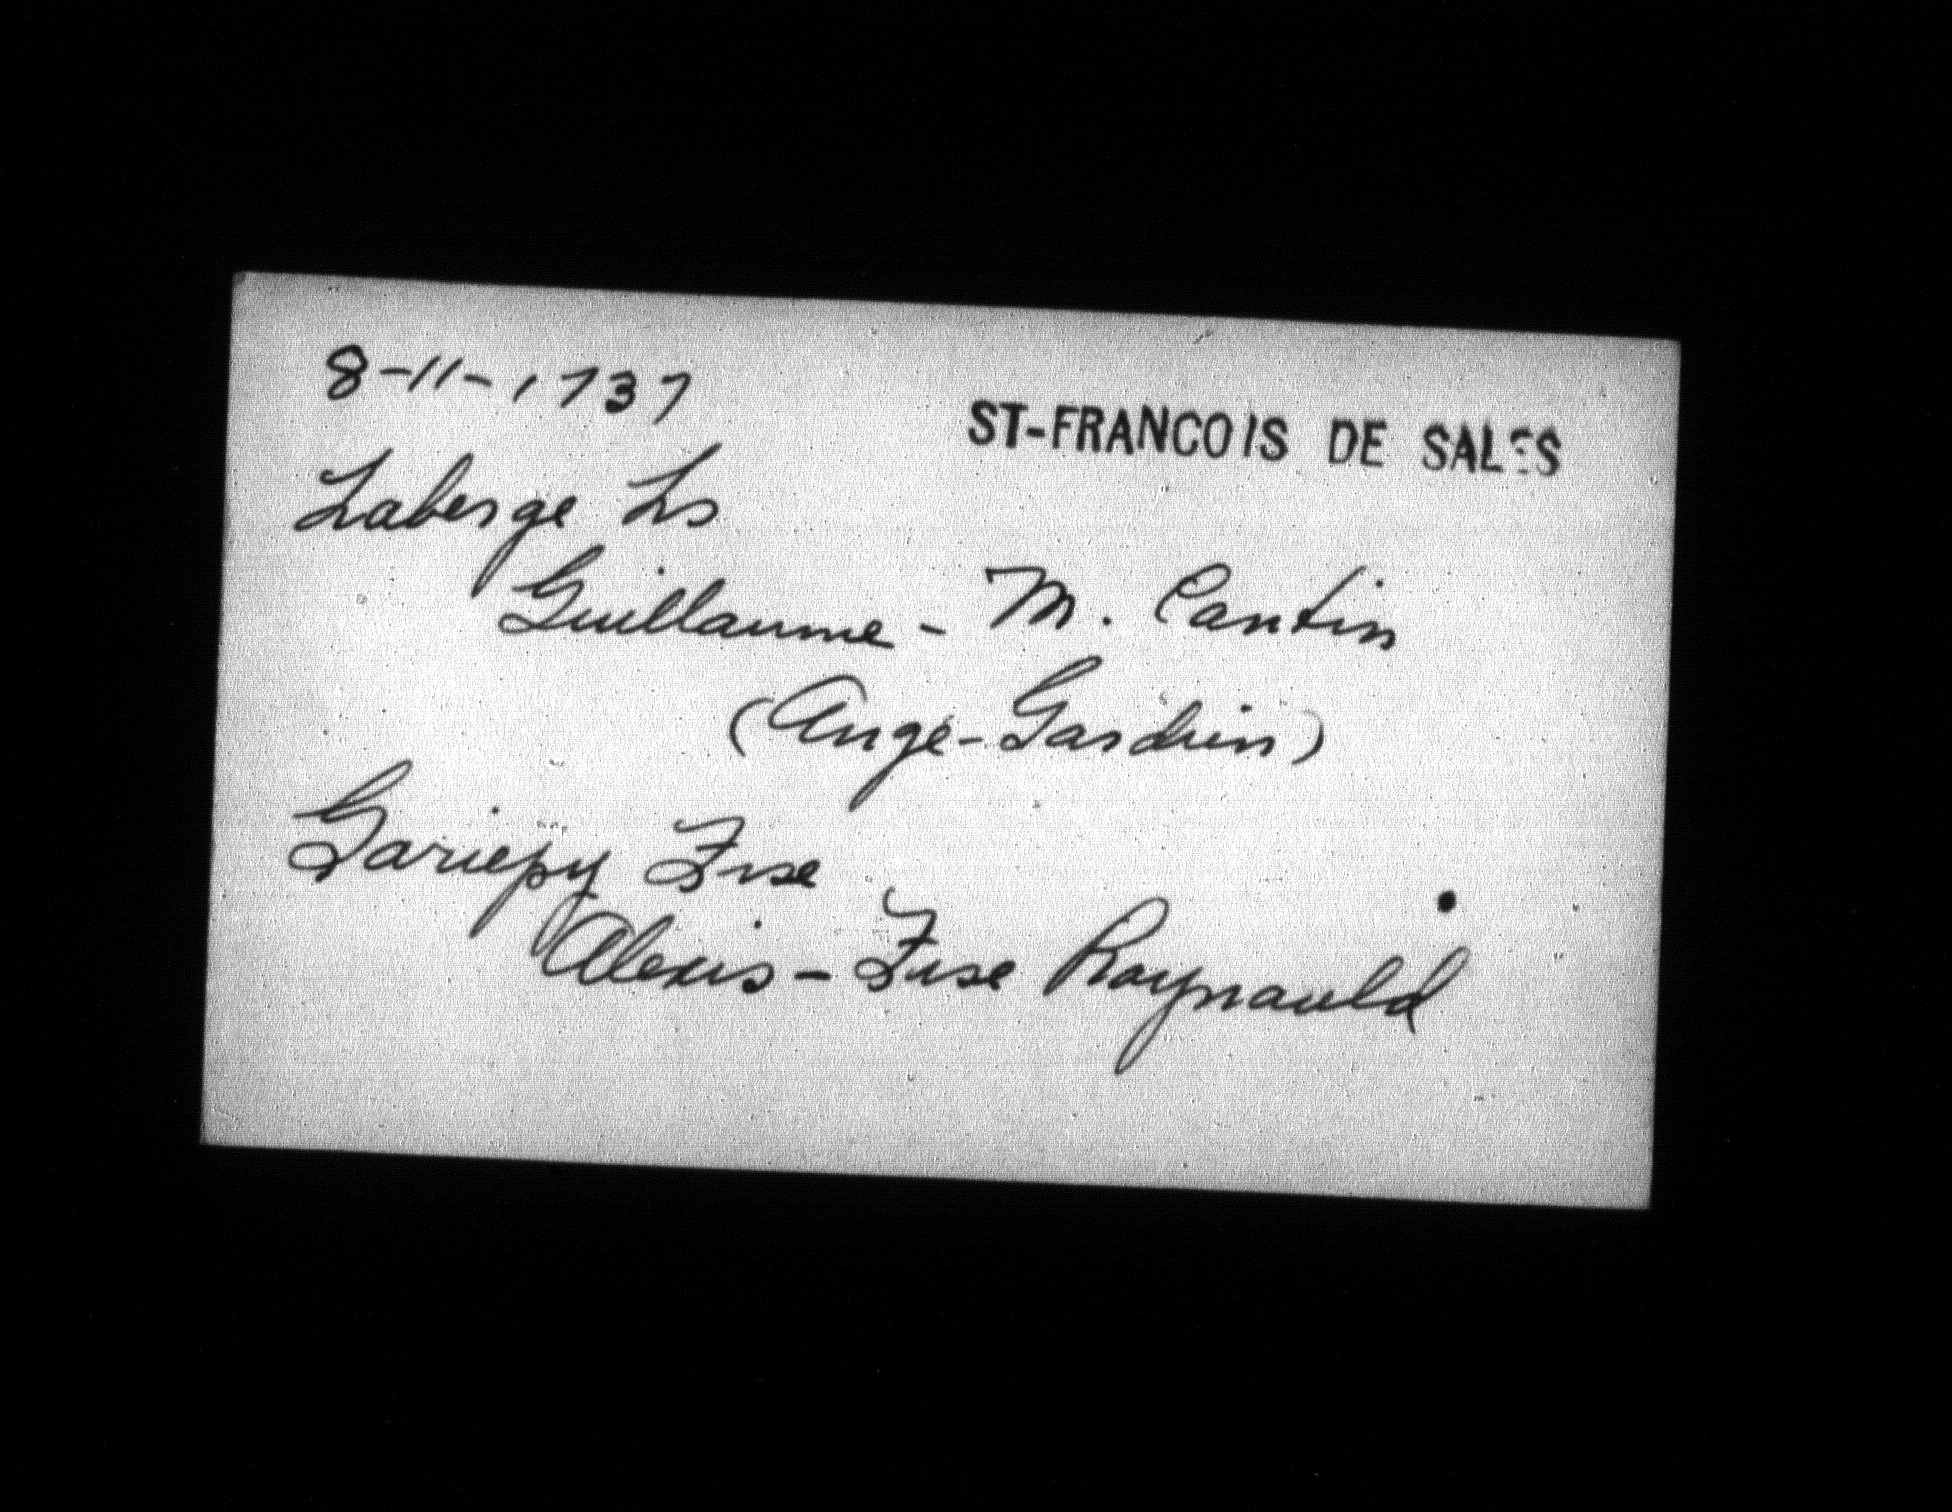 8-11-1737
ST-FRANCOIS DE SALES
Laberge Ls
Guillaume - M. Cantin
(Ange-Gardien)
Gariepy Fse
Alexis - Fse Raynauld